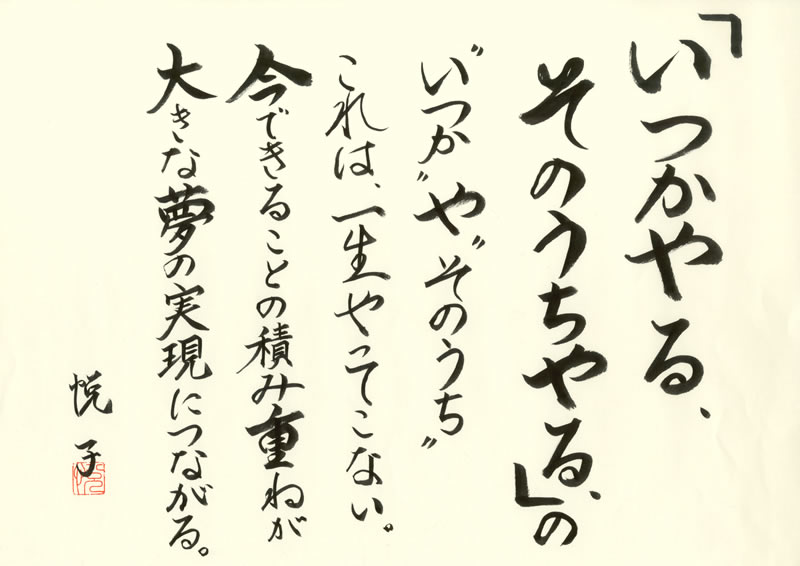 「いつかやる、
そのうちやる、」の
“いつか”や“そのうち”
これは、一生やってこない。
今できることの積み重ねが
大きな夢の実現につながる。
悦子